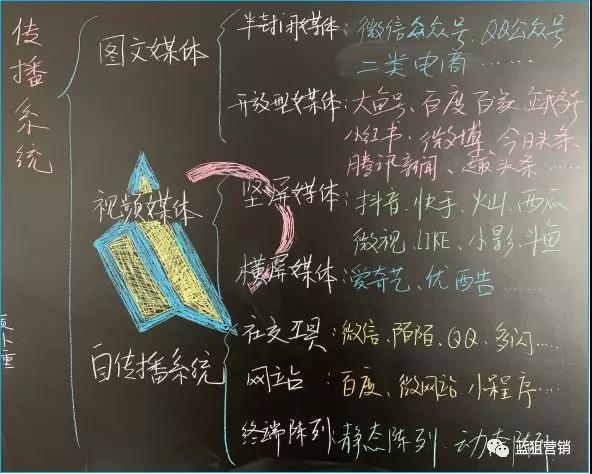 传播系统
图文媒体
半封闭媒体：微信公众号、QQ公众号
二类电商……
开放型媒体：大鱼号、百度百家、企鹅号
小红书、微博、今日头条、
腾讯新闻、趣头条……
视频媒体
竖屏媒体：抖音、快手、火山、西瓜
微视、LIKE、小影、斗鱼
横屏媒体：爱奇艺、优酷……
自传播系统
社交工具：微信、陌陌、QQ、多闪……
网站：百度、微网站、小程序……
终端阵列：静态阵列、动态阵列
蓝狙营销